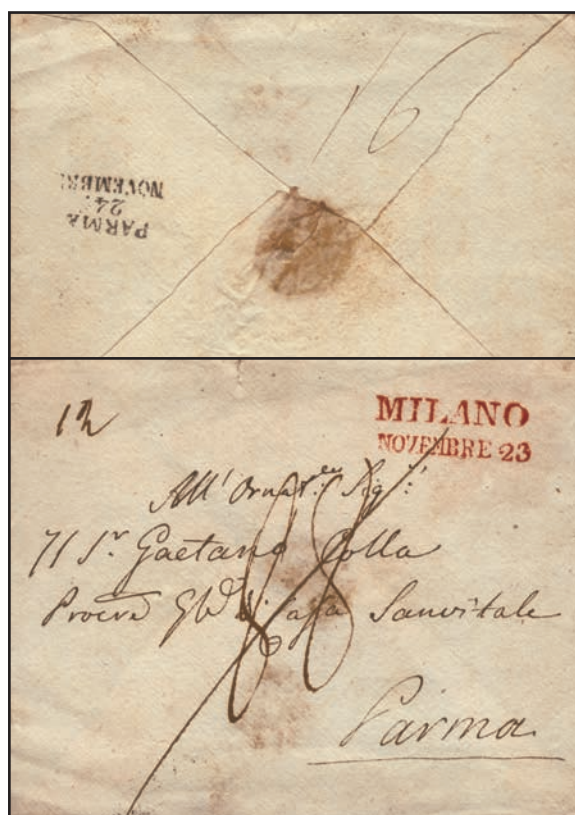 16
PARMA
24.
NOVEMBR:
12
MILANO
NOVEMBRE 23
All' Ornat.^(le) Sig.^r
Il S.^r Gaetano Colla
di Casa Sanvitale
Parma